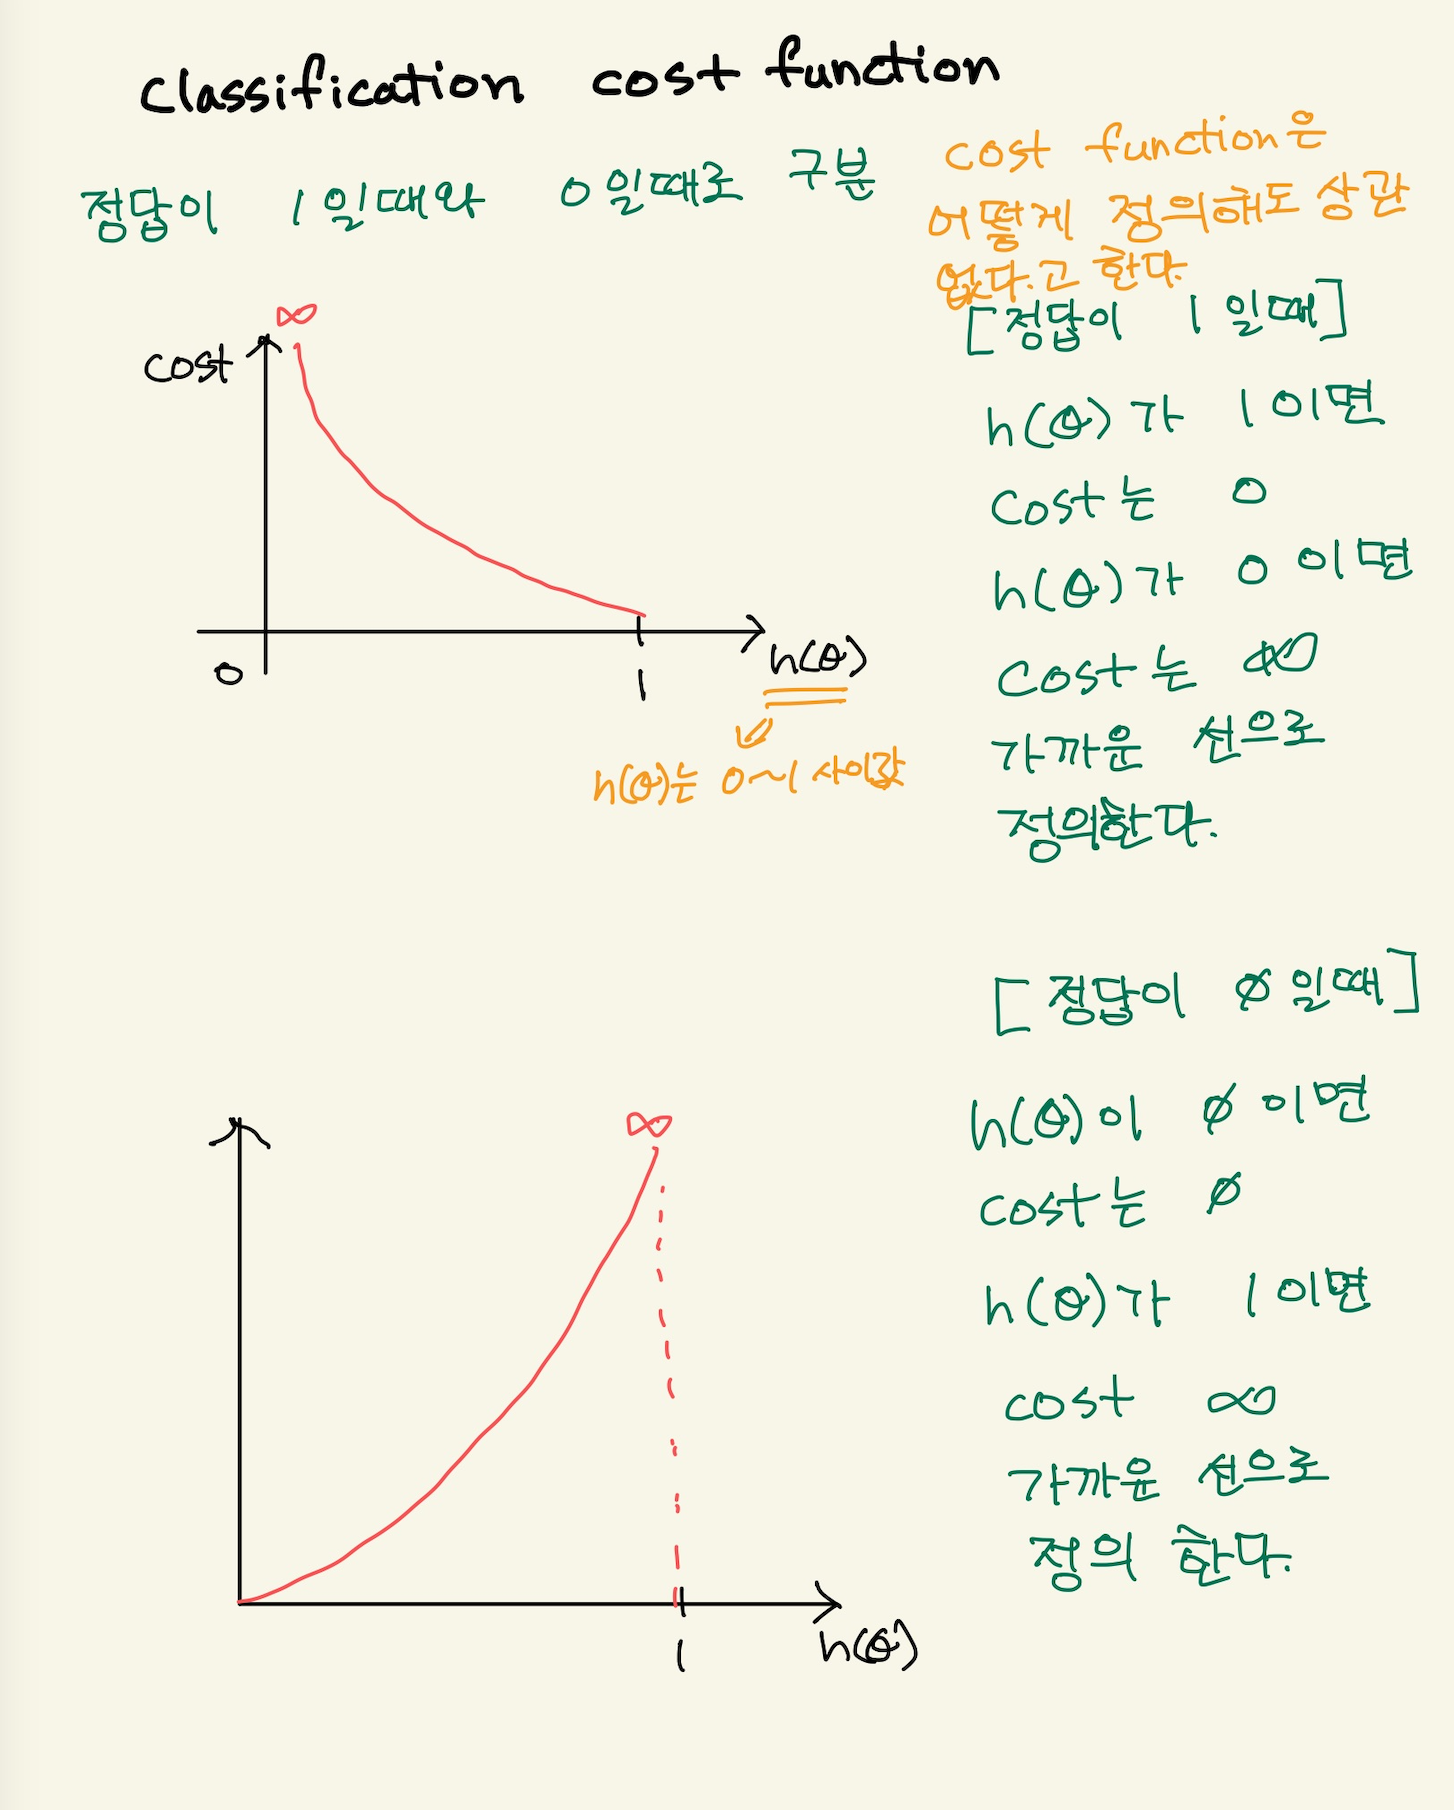 classification cost function
정답이 1일때와 0일때로 구분
cost function은
어떻게 정의해도 상관
없다.고 한다.
∞
cost
0
1
h(θ)
h(θ)는 0~1 사이값
[정답이 1일때]
h(θ)가 1이면
cost는 0
h(θ)가 0이면
cost는 ∞
가까운 선으로
정의한다.
[정답이 0일때]
h(θ)이 0이면
cost는 0
h(θ)가 1이면
cost ∞
가까운 선으로
정의 한다.
∞
1
h(θ)